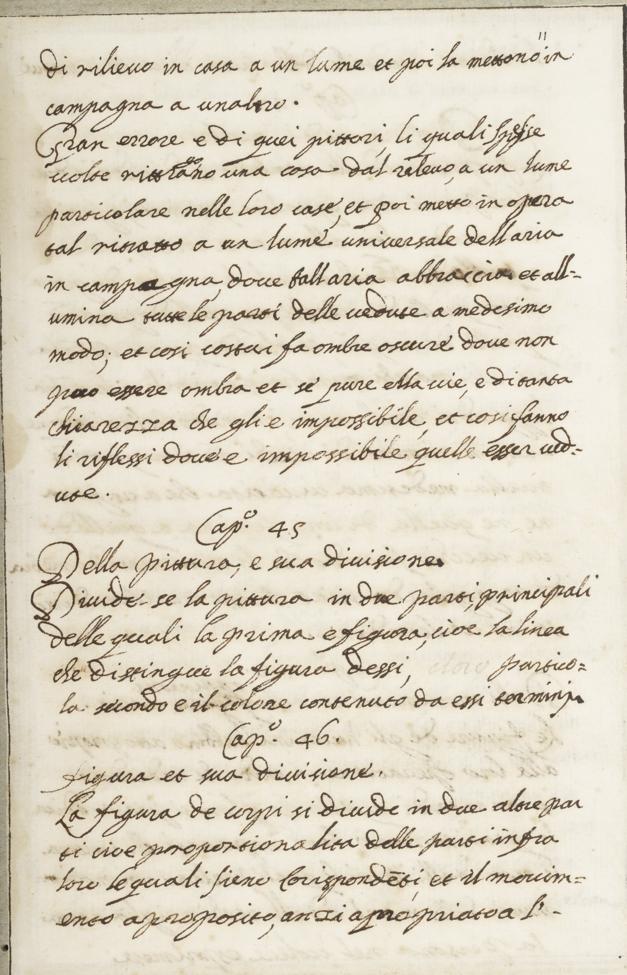 11
di rilievo in casa a un lume et poi la mettono in
campagna a unaltro.
Gran errore e di quei pittori, li quali spesse
volte rittrãno una cosa dal relevo, a un lume
particolare nelle loro case, et poi metto in opera
tal ritratto a un lume universale dell aria
in campagna, dove tall aria abbraccia et all=
umina tutte le parti delle vedute a medesimo
modo; et cosi costui fa ombre oscure dove non
puo essere ombra et se pure ella vie, e di tanta
chiarezza che gli e impossibile, et cosi fanno
li riflessi dove e impossibile quelle esser ved=
ute.
Cap.º 45
Della pittura, e sua divisione.
Divide-se la pittura in due parti, principali
delle quali la prima e figura, cioe la linea
che distingue la figura dessi, partico=
la secondo e il colore contenuto da essi termini.
Cap.º 46.
Figura et sua divisione.
La figura de corpi si divide in due altre par
ti cioe proportionalita delle parti infra
loro le quali sieno Corispondẽti, et il movim=
ento a proposito, anzi apropriato a l'-